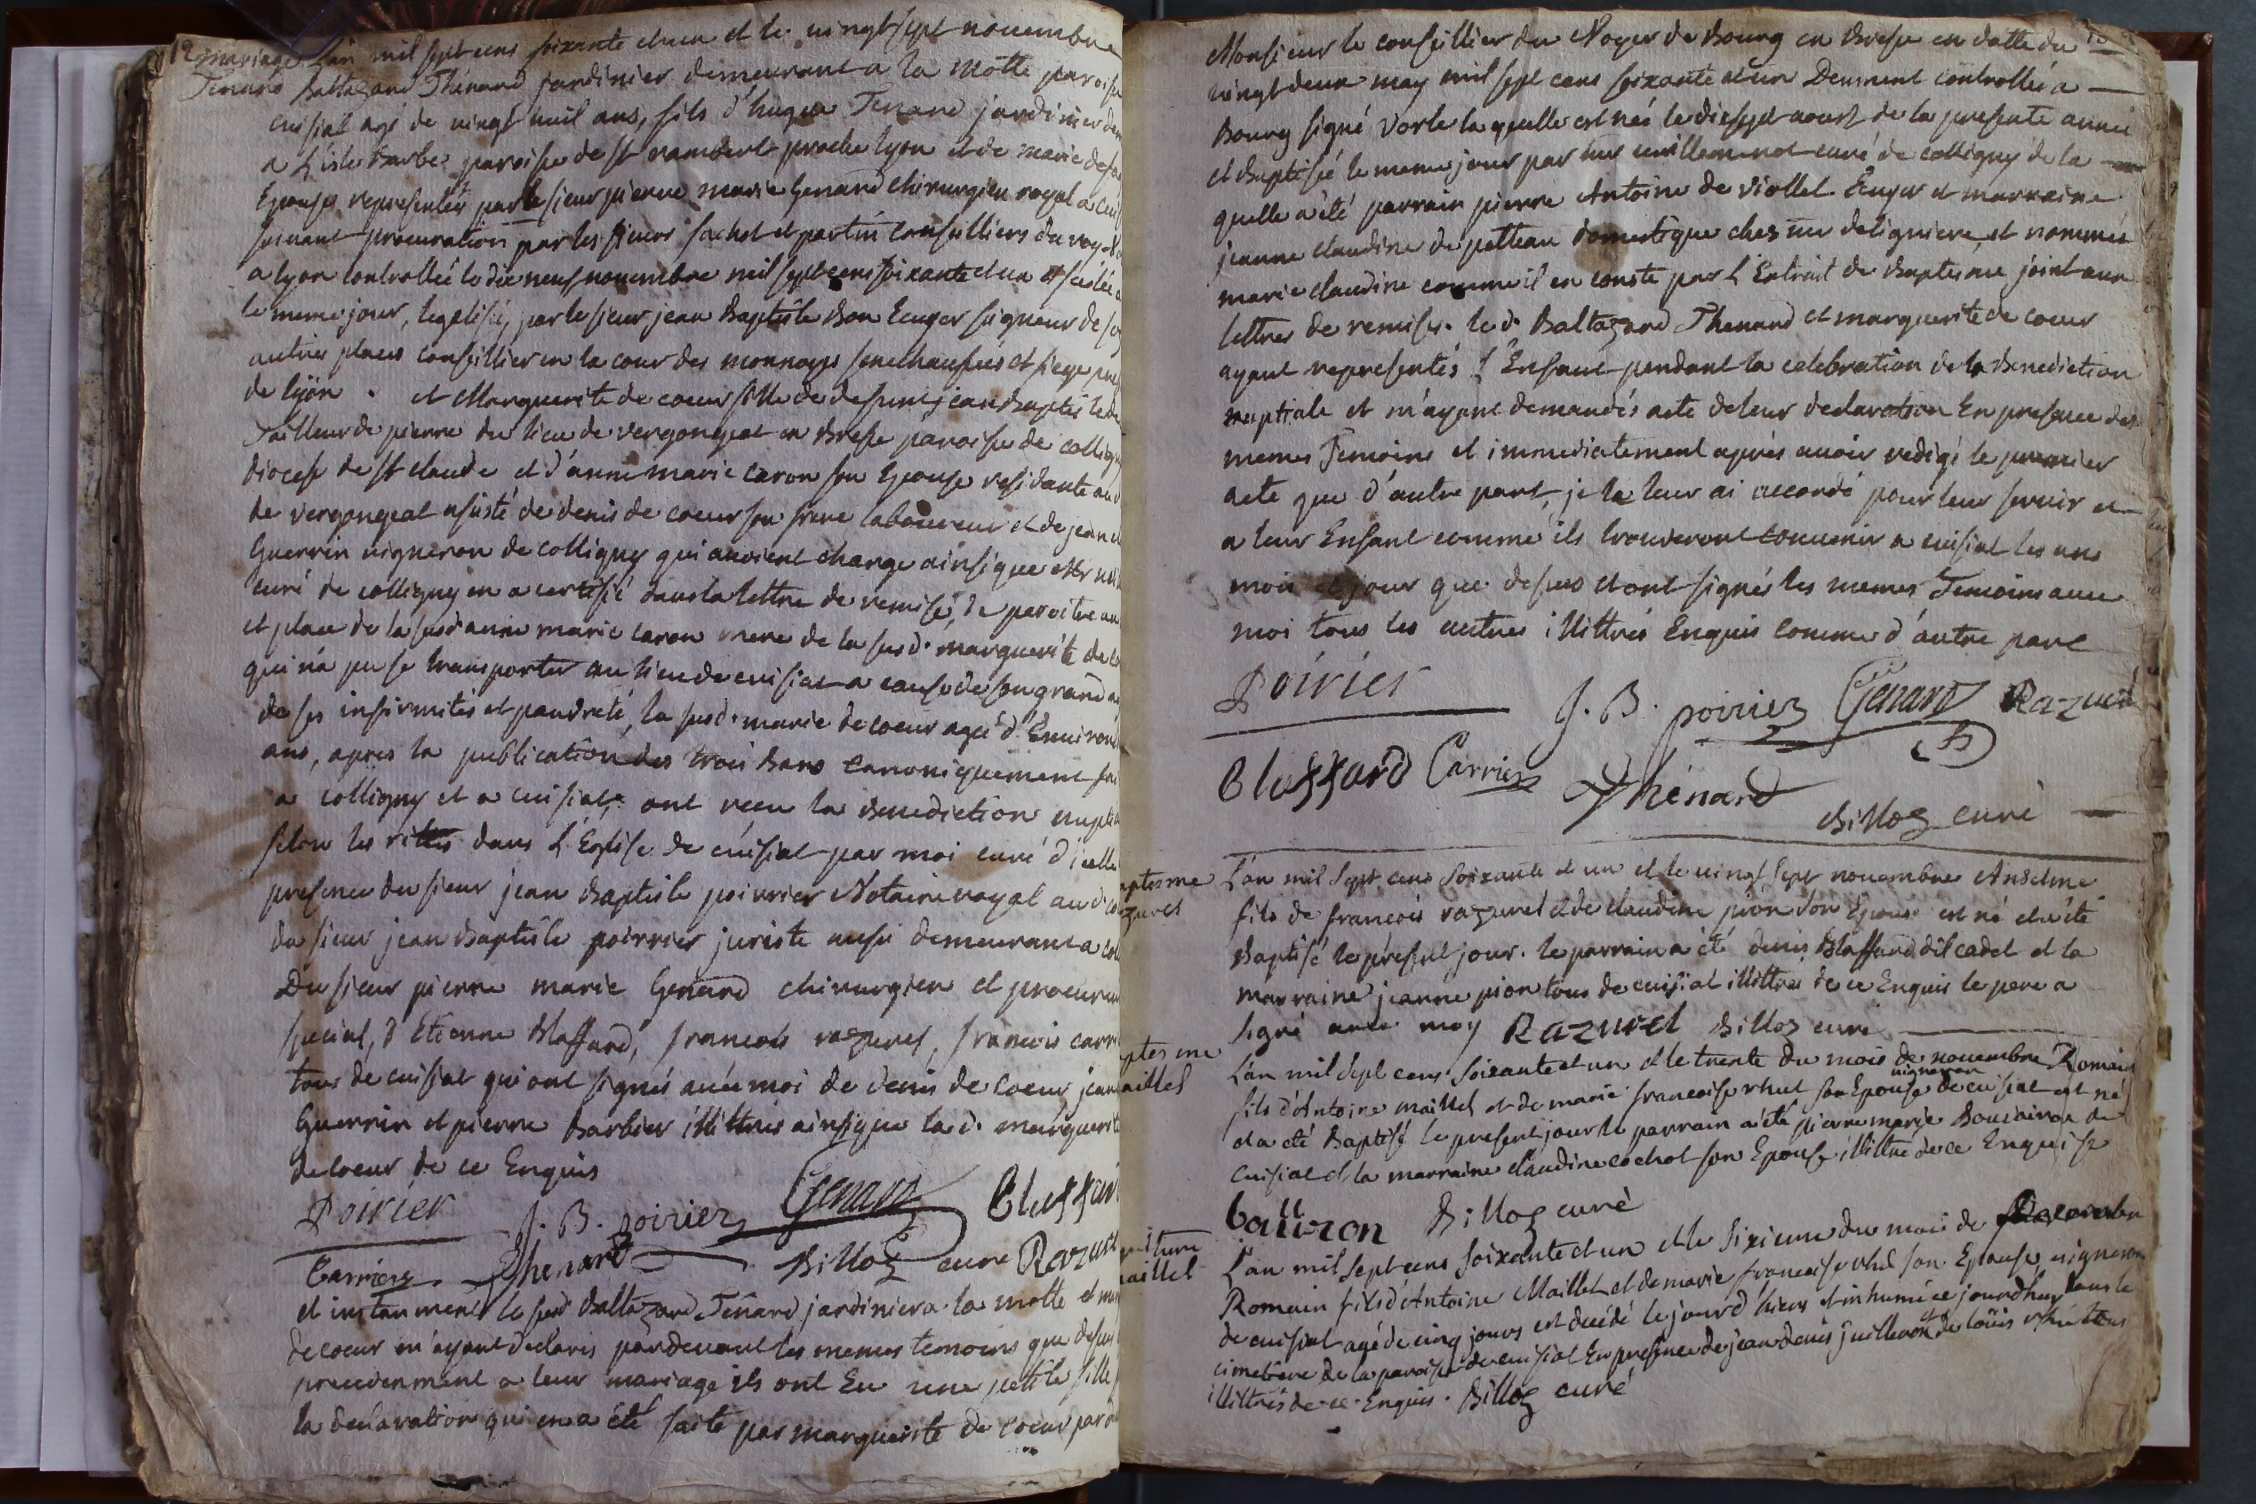 12
mariage L'an mil sept cens soixante et un et le vingt sept novembre
Tenard Baltazard Thénard jardinier demeurant a la Motte paroisse
cuisiat agé de vingt huit ans, fils d'hugue Tenard jardinier
a L'isle Barbe paroisse de st rambert proche lyon et de marie
Epouse representés par le sieur pierre marie Genard chirurgien royal a
suivant procuration par les sieurs sachet et partin conseilliers du roy
a lyon controllée le dix neuf novembre mil sept cens soixante et un et scelée
le meme jour, legalisée par le sieur jean Baptiste Bon Ecuyer seigneur de
autres places conseillier en la cour des monnoyes senechaussées et siege
de lyon . et Marguerite de coeur fille de defunt jean baptiste de
Tailleur de pierre du lieu de vergongeat en Bresse paroisse de
diocese de st claude et d'anne marie caron son Epouse residante
de vergongeat assisté de denis de coeur son frere laboureur et de jean
Guerrin vigneron de colligny qui avoient charge ainsi que
curé de colligny en a certifié dans la lettre de remise, de paroitre au
et place de la susd anne marie caron mere de la susd. marguerite de
qui n'a pu se transporter au lieu de cuisiat a cause de son grand
de ses infirmités et pauvreté, la susd. marie de coeur agée d'Environ
ans, apres la publication des trois bans canoniquement
a colligny et a cuisiat, ont recu la Benediction
selon les rittes dans L'Eglise de cuisiat par moi curé d'icelle
presence du sieur jean Baptiste poirrier Notaire royal
du sieur jean Baptiste poirrier juriste aussi demeurant a
Du sieur pierre marie Genard chirurgien et procureur
special, d'Etienne Blaffard, francois razurel, francois
tous de cuisiat qui ont signés avec moi de denis de coeur jean
Guerrin et pierre Barbier illittrés ainsi que lad. marguerite
de coeur de ce Enquis
Poirier J. B. poirier Genard
Carrier Thenard Billoz curé Razurel
et instanment le susd Baltazard Tenard jardinier a la motte et
de coeur m'ayant declarés pardevant les memes temoins que dessus
precedenment a leur mariage ils ont Eu une petite fille
la declaration qui en a été faite par marguerite de coeur
Monsieur le conseillier du Noyer de Bourg en Bresse en datte du
vingt deux may mil sept cens soixante et un Deument controllée a
Bourg signé vorle la quelle est née le dix sept aoust de la presente année
et Baptisée le meme jour par curé de colligny de la
quelle a été parrain pierre Antoine de viollet Ecuyer et marraine
jeanne claudine de petteau domestique chez mr deligniere, et nommée
marie claudine comme il en conste par L'Extrait de Baptesme joint aux
lettres de remise. led. Baltazard Thenard et marguerite de coeur
ayant representés L'Enfant pendant la celebration de la Benediction
nuptiale et m'ayant demandés acte de leur declaration En presence des
memes Temoins et immediatement aprés avoir redigé le premier
acte que d'autre part, je la leur ai accordé pour leur servir et
a leur Enfant comme ils trouveront convenir a cuisiat les ans
mois et jour que dessus et ont signés les memes Temoins avec
moi tous les autres illittrés Enquis comme d'autre part
Poirier J. B. poirier Genard Razurel
Carrier Thénard
Billoz curé
L'an mil sept cens soixante et un et le vingt sept novembre Anselme
fils de francois razurel et de claudine pion son Epouse est né et a été
Baptisé le présent jour. le parrain a été denis Blaffard dit cadet et la
marraine jeanne pion tous de cuisiat illittrés de ce Enquis le pere a
signé avec moy Razurel Billoz curé
L'an mil sept cens soixante et un et le trente du mois de novembre Romain
vigneron
fils d'Antoine maillet et de marie francoise rhut son Epouse de cuisiat est né
et a eté Baptisé le present jour le parrain a été pierre marie de
cuisiat et la marraine claudine cochot son Epouse illittré de ce Enquise
Billoz curé
L'an mil sept cens soixante et un et le sixieme du mois de Decembre
Romain fils d'Antoine Maillet et de marie francoise rhut son Epouse vigneron
de cuisiat agé de cinq jours est decédé le jour d'hiers et inhumé ce jourdhuy dans le
cimetiere de la paroisse de cuisiat En presence de jean denis juilleron et de loüis rhut tous
illittrés de ce Enquis. Billoz curé